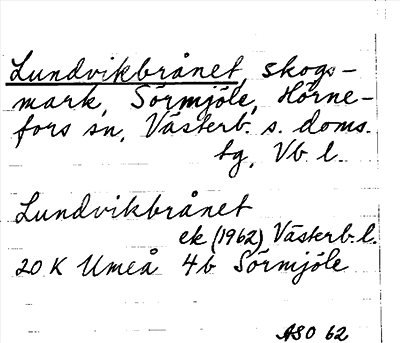 Lundvikbrånet, skogs-
mark, Sörmjöle, Hörne-
fors sn, Västerb. s. doms.
tg, Vb. l.
Lundvikbrånet
ek (1962) Västerb. l.
20 K Umeå 4b Sörmjöle
ASO 62